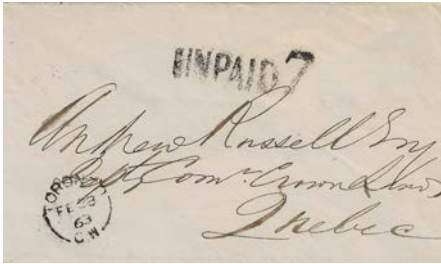 UNPAID 7
Andrew Russell Esq
Crown Lands
Quebec
TORONTO
FE 63
C.W.